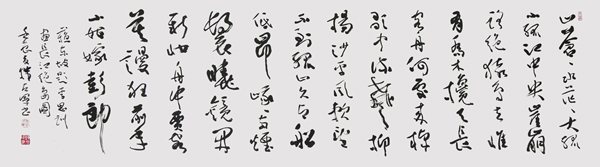 山蒼〻水茫〻大孤
小孤江中央崖崩
路絕猿鳥去惟
有喬木攙天長
客舟何處來棹
歌中流聲抑
揚沙平風軟望
不到孤山久與船
低昂峨〻兩煙
鬟曉鏡開
新妝舟中賈客
莫謾狂前年
小姑嫁彭郎
蘇東坡題李思訓
畫長江絕島圖